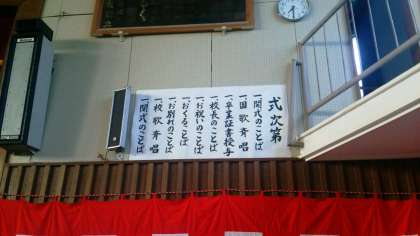 式次第
一、開式のことば
一、国歌斉唱
一、卒業証書授与
一、校長のことば
一、お祝いのことば
一、おくることば
一、お別れのことば
一、校歌斉唱
一、閉式のことば